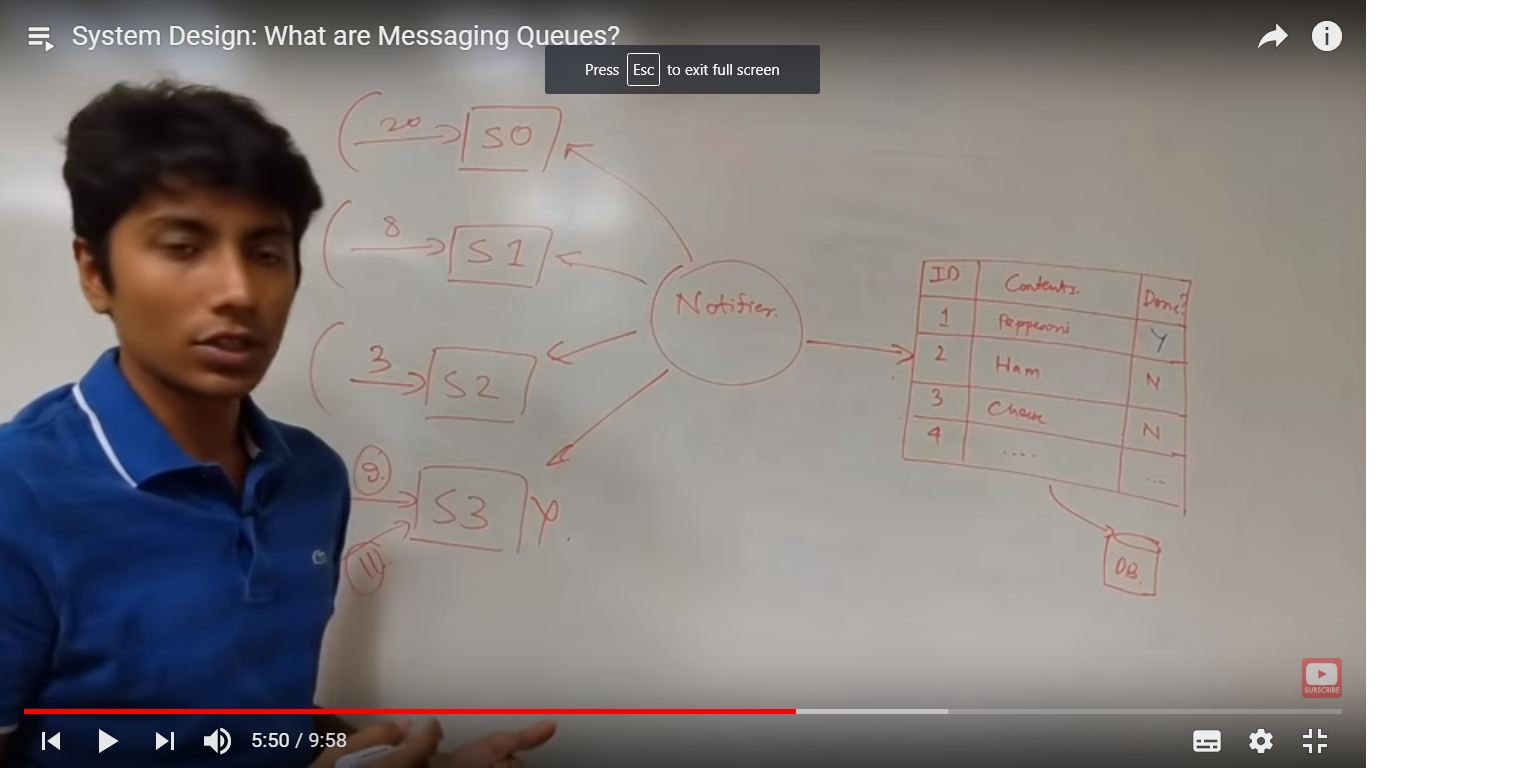 System Design: What are Messaging Queues?
Press Esc to exit full screen
20
S0
8
S1
3
S2
9.
S3
11.
Notifier.
ID Contents. Done?
1 Pepperoni Y
2 Ham N
3 N
4 .... ...
DB.
SUBSCRIBE
5:50 / 9:58